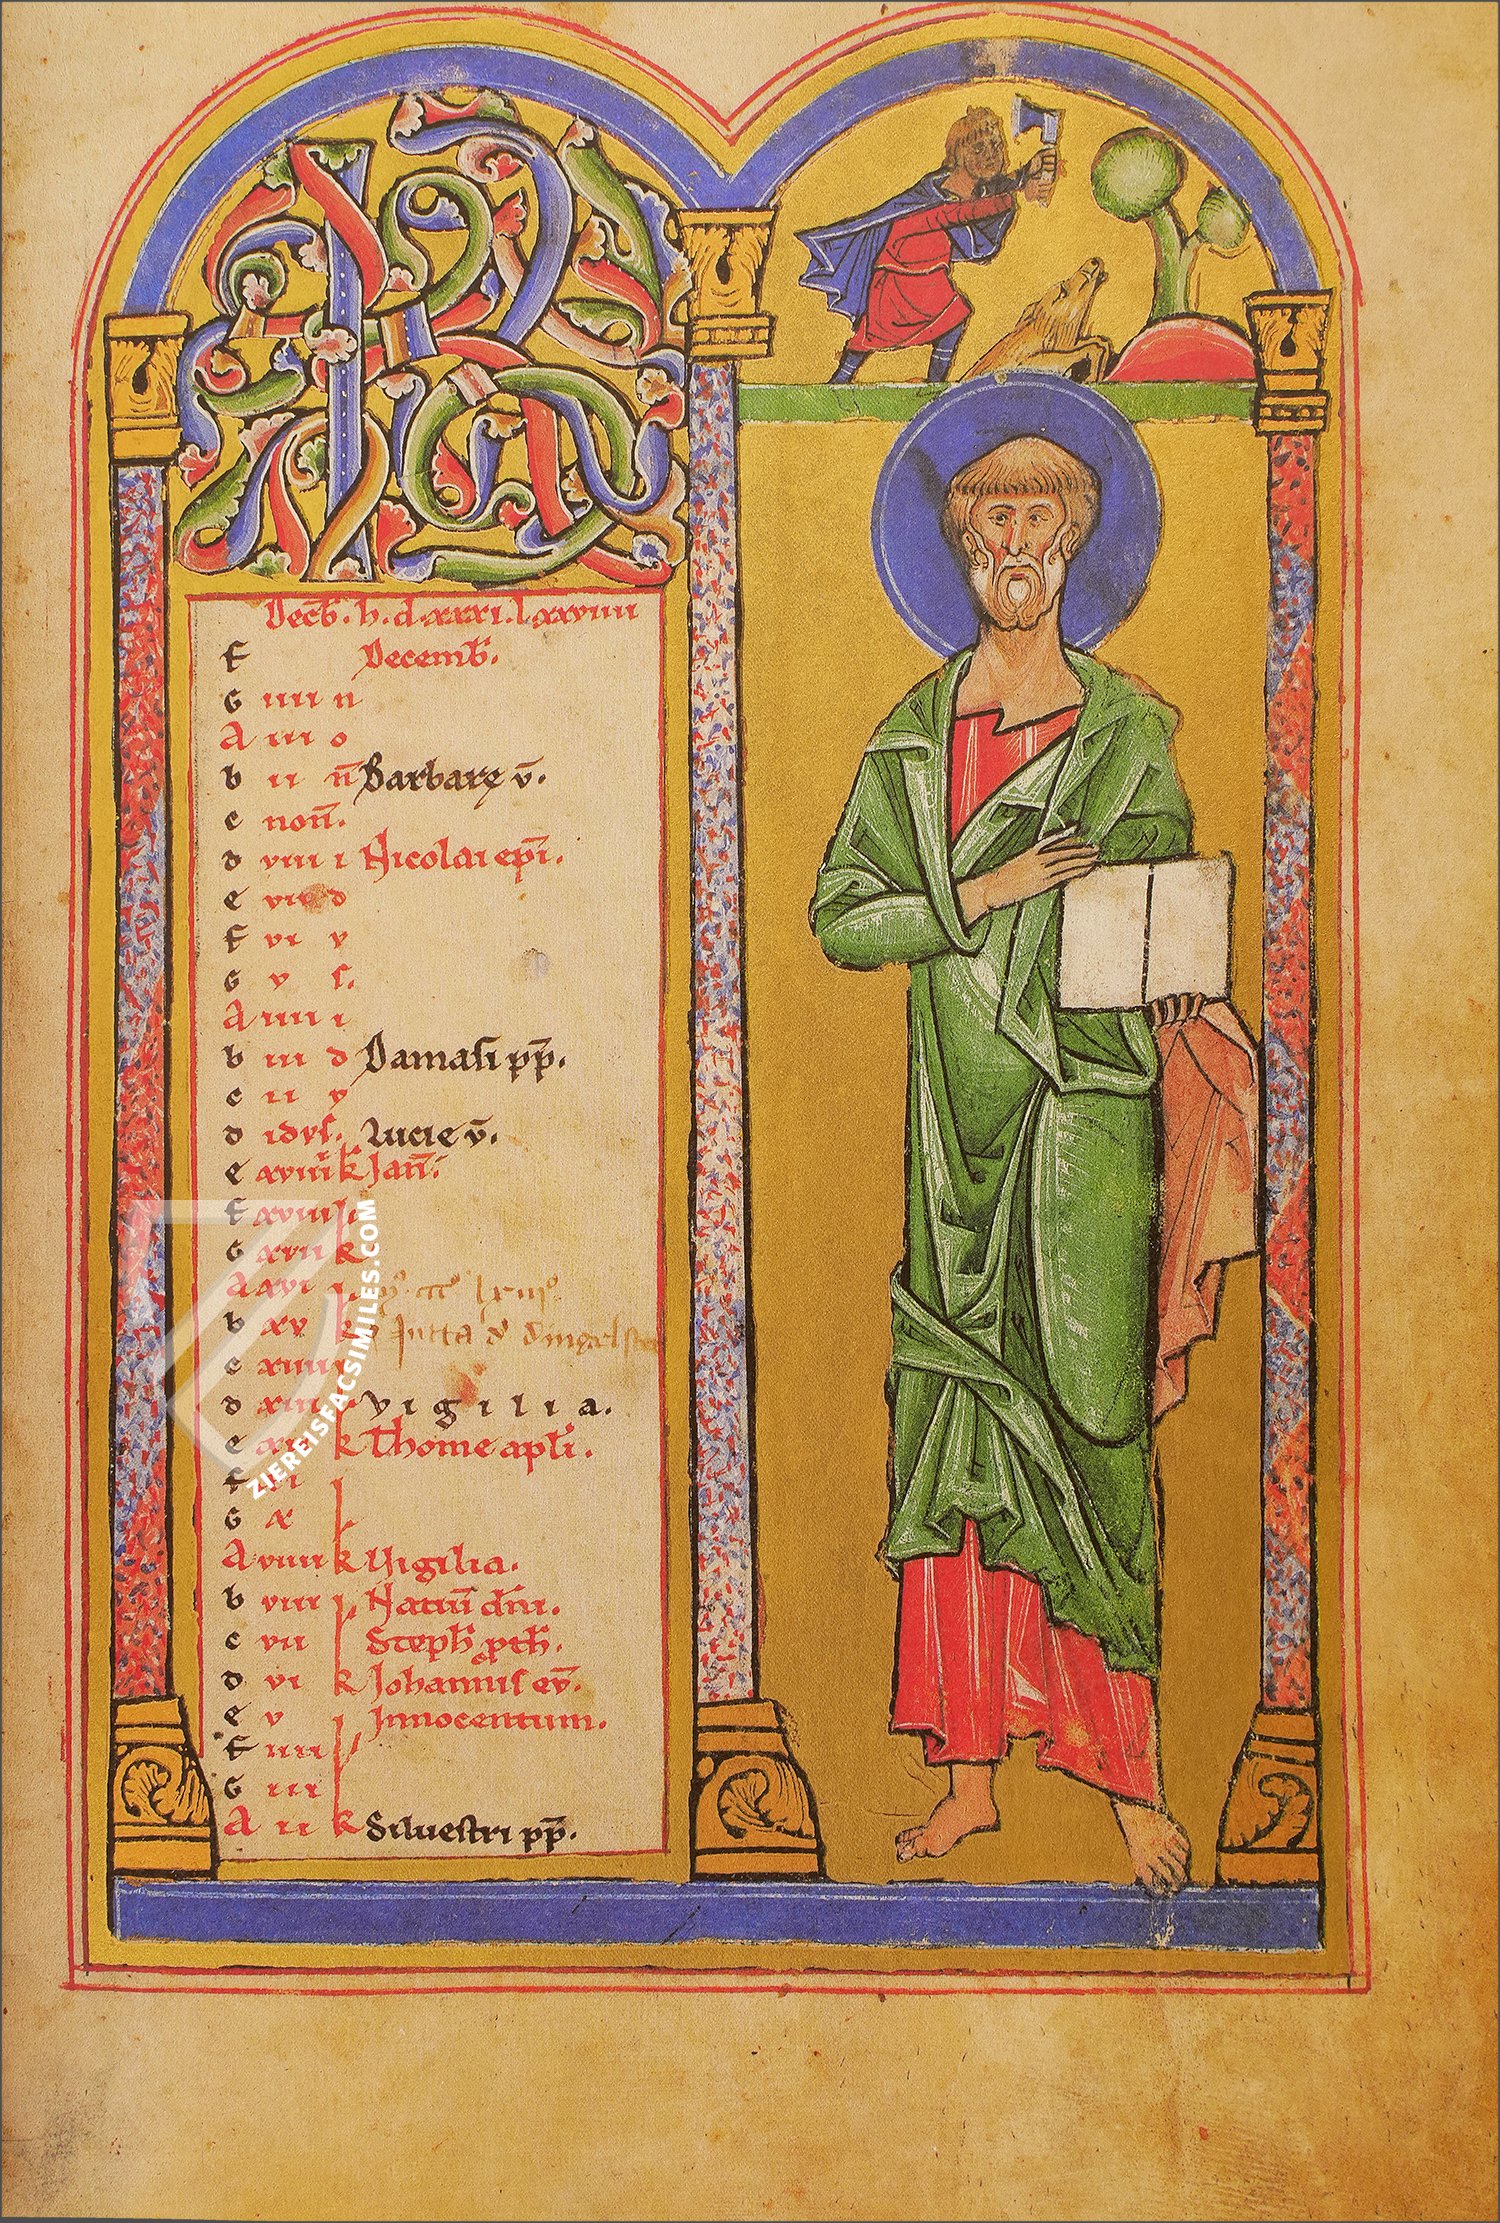 KL
Decb̄. h. d. xxxi. l. xxviiii
f Decemb̄.
G iiii n
A iii o
b ii n̄ Barbarę v̄.
c non̄.
d viii i Nicolai ep̄i.
e vii d
f vi v
G v s.
A iiii i
b iii d Damasi pp̄.
c ii v
d idus. Lucie v̄.
e xviiii k Jan̄.
f xviii
G xvii k
A xvi
b xv k Jutta
c xiiii
d xiii Vigilia.
e xii k Thome apl̄i.
f xi
G x
A viiii k Vigilia.
b viii Natiū dn̄i.
c vii Steph̄ pth̄.
d vi k Johannis ev̄.
e v Innocentum.
f iiii
G iii
A ii k Siluestri pp̄.
ZIEREISFACSIMILES.COM